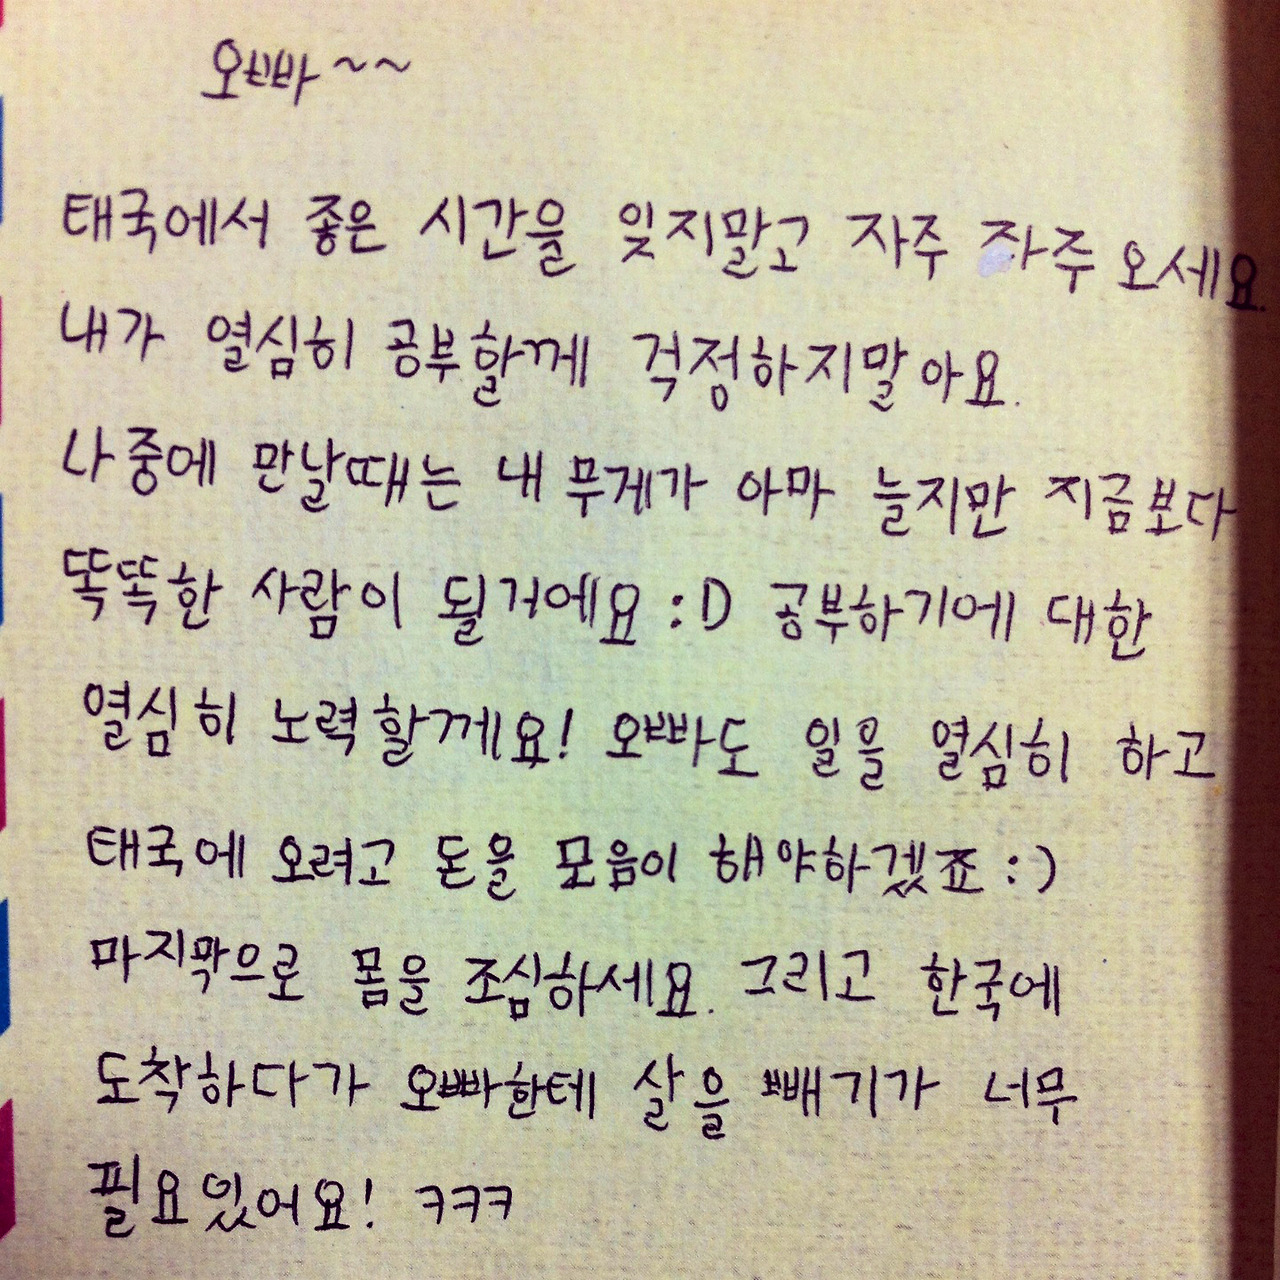 오빠~~
태국에서 좋은 시간을 잊지말고 자주 자주 오세요.
내가 열심히 공부할께 걱정하지말아요.
나중에 만날때는 내 무게가 아마 늘지만 지금보다
똑똑한 사람이 될거에요 :D 공부하기에 대한
열심히 노력할께요! 오빠도 일을 열심히 하고
태국에 오려고 돈을 모음이 해야하겠죠 :)
마지막으로 몸을 조심하세요. 그리고 한국에
도착하다가 오빠한테 살을 빼기가 너무
필요있어요! ㅋㅋㅋ